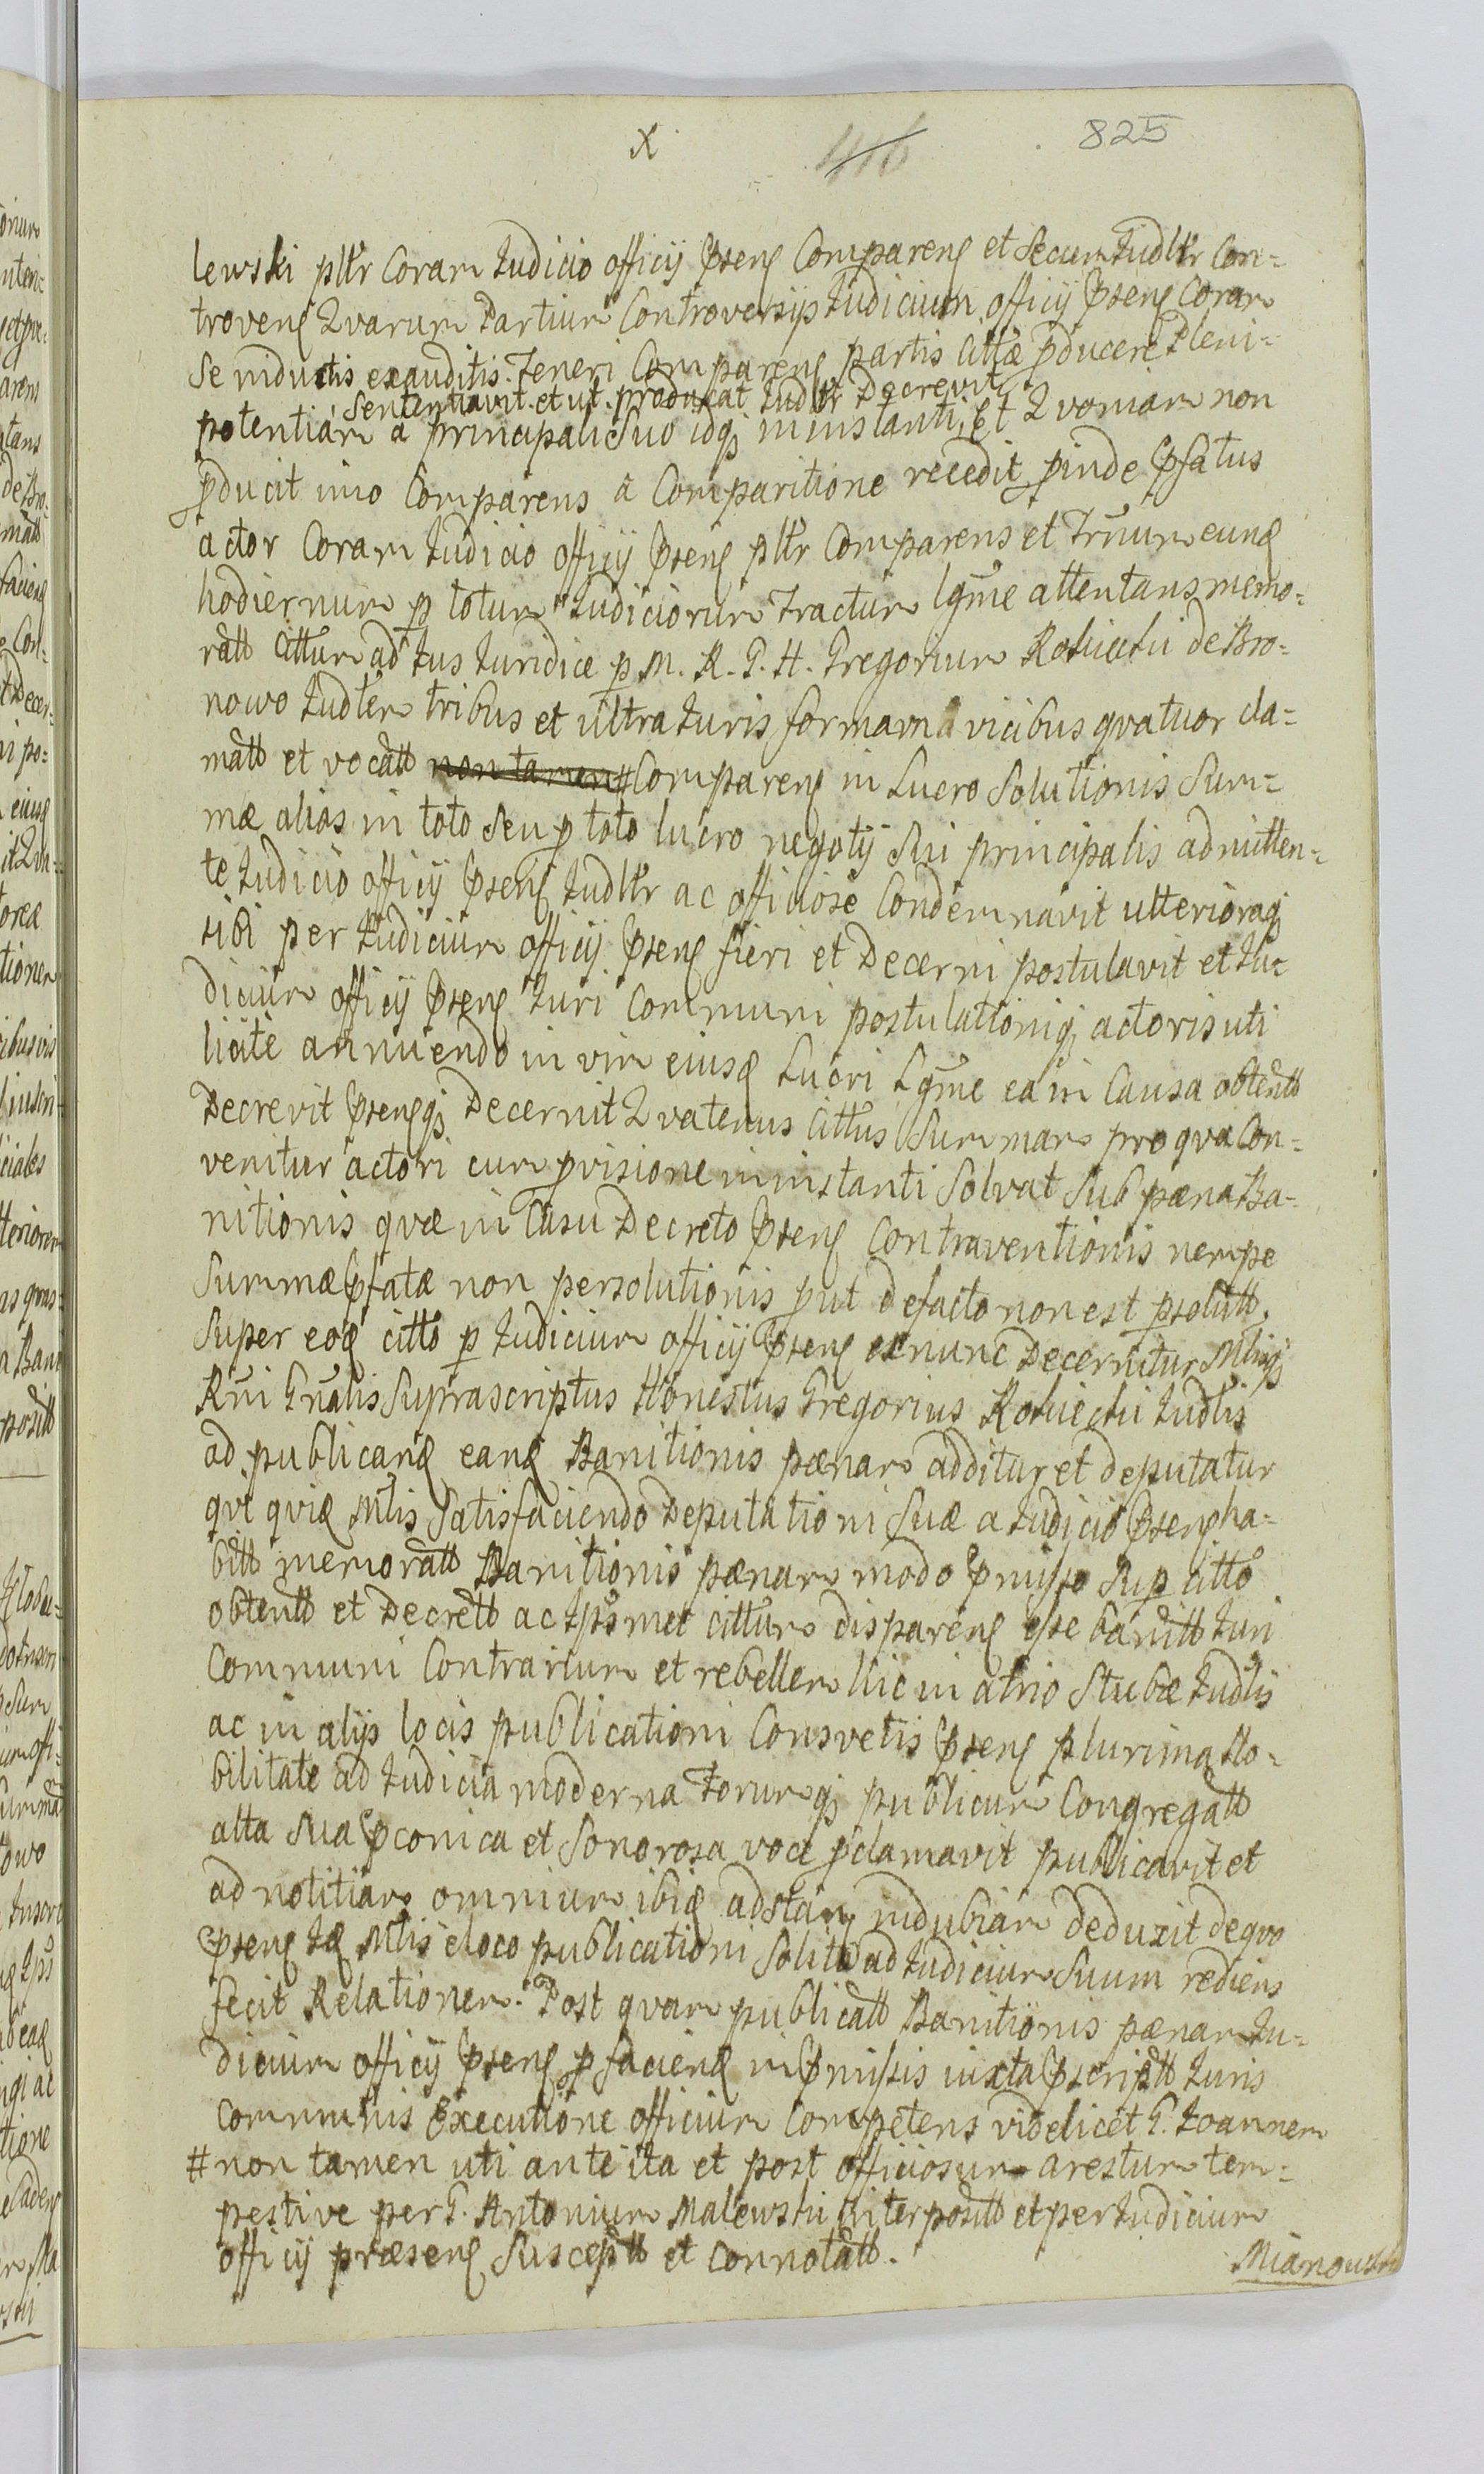 X 416 825
lewski pltr Coram Judicio officij Pseng Compareng et Secum Judltr Con=
troveng Qvarum Partium Controversijs Judicium officij Pseng Coram
Se inductis exauditis. Teneri Compareng partis Cittæ pducere Pleni=
Sententiavit. et ut. producat Judltr Decrevit
potentiam â principali Suo idqꝫ in instanti, Et Qvoniam non
pducit imo Comparens â Comparitione recedit pinde Psatus
actor Coram Judicio officij Pseng pltr Comparens et Trnum eunđ
hodiernum p totum Judiciorum Tractum lgme attentans memo=
ratt Cittum ad Jus Juridice p M. R. G. H. Gregorium de Bro=
nowo Judlem tribus et ultra Juris formam vicibus qvatuor cla=
matt et vocatt non tamen # Compareng in Lucro Solutionis Sum=
mæ alias in toto seu p toto lucro negotij Sui principalis admitten=
te Judicio officij Pseng Judltr ac officiose Condemnavit ulterioraqꝫ
sibi per Judicium officij Pseng fieri et Decerni postulavit et Ju=
dicium officij Pseng Juri Communi postulationiqꝫ actoris uti
licite annuendo in vim eiusđ Lucri Lgme ea in Causa obtentt
Decrevit Psengqꝫ Decernit Qvatenus Cittus Summam pro qva Con=
venitur actori cum pvisione in instanti Solvat Sub pæna Ba=
nitionis qvæ in Casu Decreto Pseng Contraventionis nempe
Summæ Pfatæ non persolutionis put de facto non est psolutt.
Super eođ citto p Judicium officij Pseng ex nunc Decernitur Mlisqꝫ
Rni Gnalis Suprascriptus Honestus Gregorius Judlis
ad publicanđ eanđ Banitionis pænam additur et deputatur
qvi qviđ Mlis Satisfaciendo Deputationi Suæ a Judicio Pseng ha=
bitt memoratt Banitionis pænam modo Pmisso Sup citto
obtentt et Decrett ac Jpsmet cittum dispareng esse banitt Juri
Communi Contrarium et rebellem hic in atrio Stubæ Judlis
ac in alijs locis publicationi Consvetis Pseng plurima No=
bilitate ad Judicia moderna Forumqꝫ publicum Congregatt
alta sua Pconica et Sonorosa voce pclamavit publicavit et
ad notitiam omnium ibiđ adstang indubiam deduxit de qvo
Pseng Jđ Mlis e loco publicationi Solito ad Judicium Suum rediens
fecit Relationem. Post qvam publicatt Banitionis pænam Ju=
dicium officij Pseng p facienđ in Pmissis iuxta Pscriptt Juris
communis Executione officium Competens videlicet G. Joannem
# non tamen uti ante ita et post officiosum arestum tem=
pestive per G. Antonium Malewski interpositt et per Judicium
officij præseng Susceptt et connotatt.
Mianowski